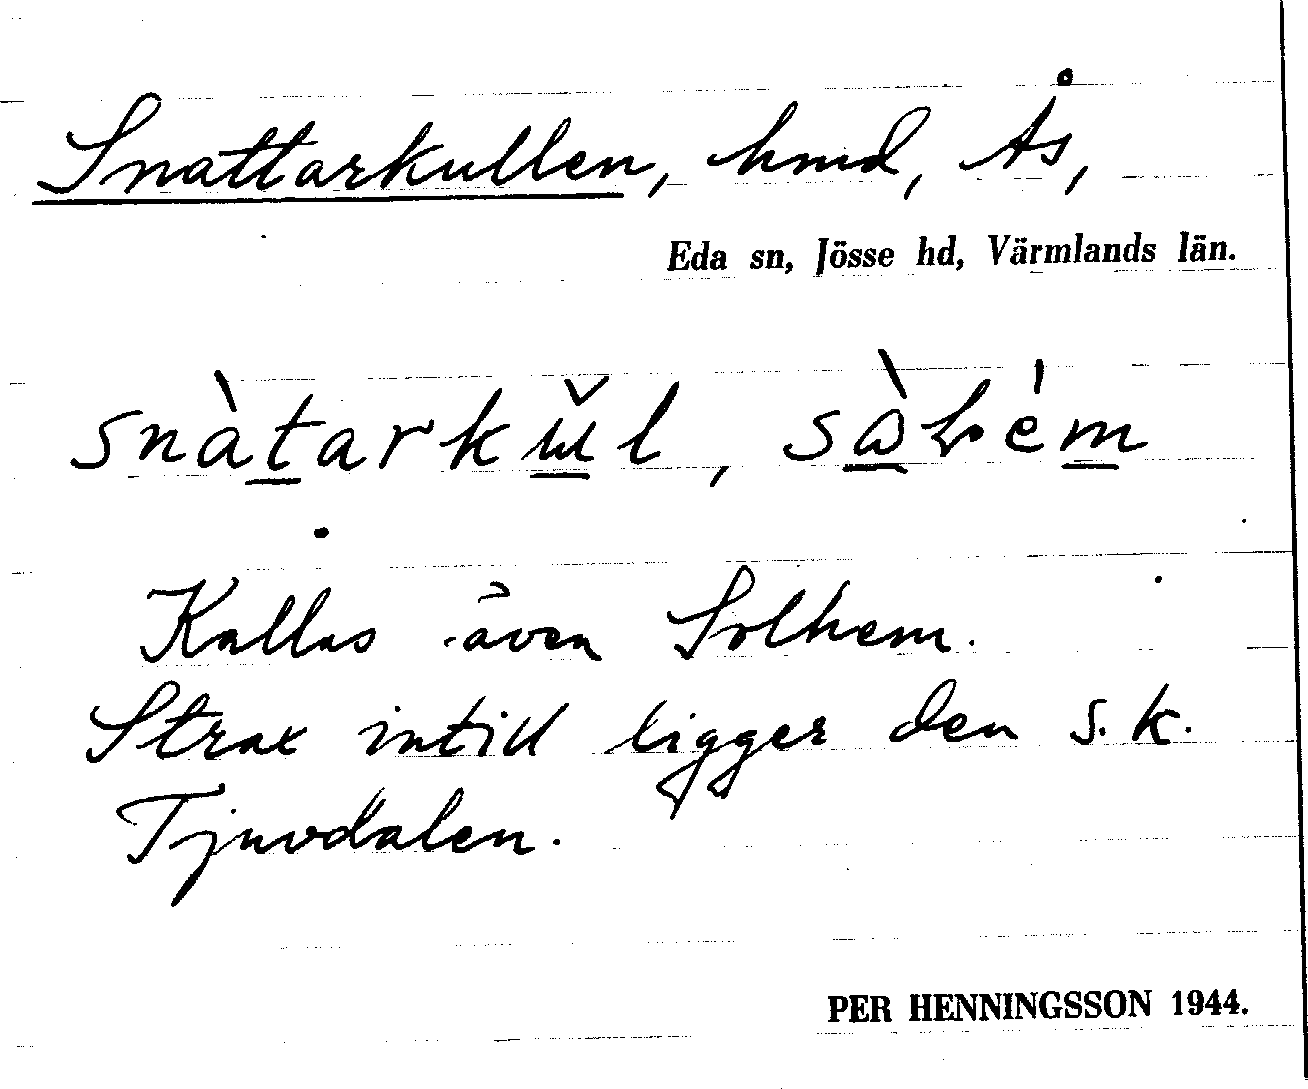 Snattarkullen, hmd, Ås,
Eda sn, Jösse hd, Värmlands län.
snàtarkŭl,
Kallas även Solhem.
Strax intill ligger den s.k.
Tjuvdalen.
PER HENNINGSSON 1944.